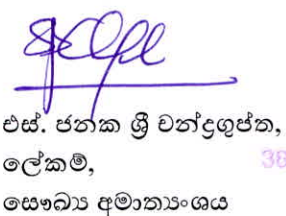 එස්. ජනක ශ්‍රී චන්ද්‍රගුප්ත,
ලේකම්, 38
සෞඛ්‍ය අමාත්‍යංශය